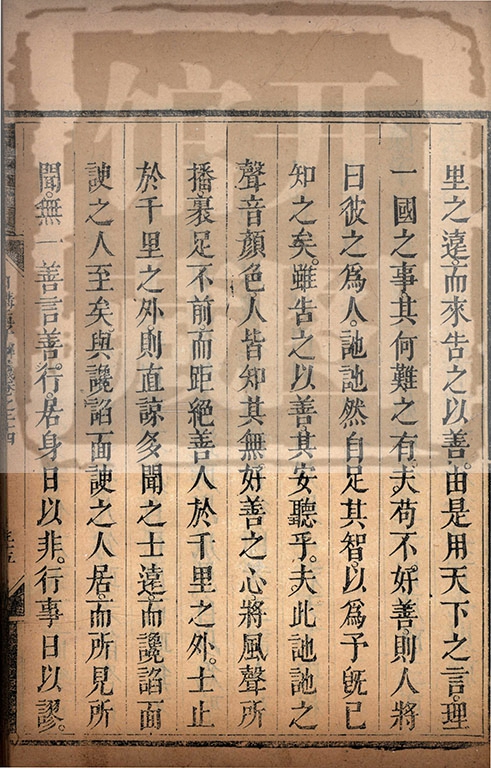 里之遠而來告之以善。由是用天下之言理
一國之事其何難之有。夫苟不好善。則人將
曰彼之爲人。訑訑然自足其智。以爲予旣已
知之矣。雖告之以善。其安聽乎。夫此訑訑之
聲音顔色人皆知其無好善之心。將風聲所
播裹足不前。而距絕善人於千里之外。士止
於千里之外。則直諒多聞之士遠。而讒諂面
諛之人至矣。與讒諂面諛之人居。而所見所
聞。無一善言善行。居身日以非。行事日以謬。